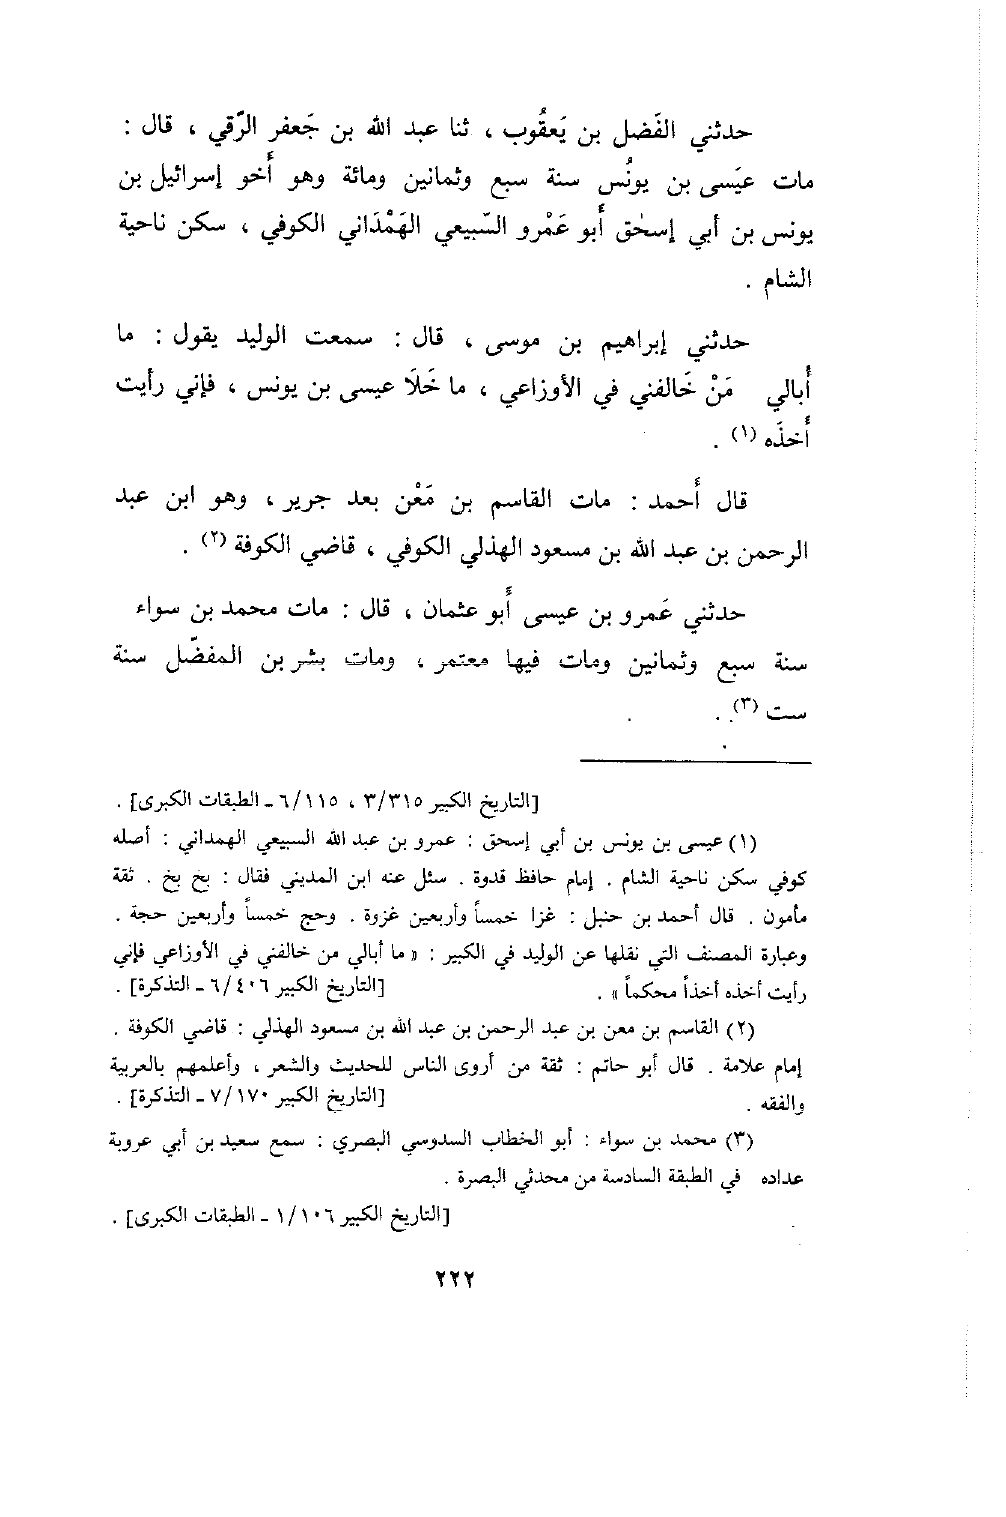 حدثني الفَضل بن يَعقُوب ، ثنا عبد الله بن جَعفر الرَّقي ، قال :
مات عيَسى بن يونُس سنة سبع وثمانين ومائة وهو أَخو إسرائيل بن
يونس بن أبي إسحٰق أَبو عَمْرو السَّبيعي الهَمْدَاني الكوفي ، سكن ناحية
الشام .
حدثني إبراهيم بن موسى ، قال : سمعت الوليد يقول : ما
أُبالي مَنْ خَالفني في الأوزاعي ، ما خَلَا عيسى بن يونس ، فإني رأيت
أَخذَه (١) .
قال أَحمد : مات القاسم بن مَعْن بعد جرير ، وهو ابن عبد
الرحمن بن عبد الله بن مسعود الهذلي الكوفي ، قاضي الكوفة (٢) .
حدثني عَمرو بن عيسى أَبو عثمان ، قال : مات محمد بن سواء
سنة سبع وثمانين ومات فيها معتمر ، ومات بشر بن المفضّل سنة
ست (٣) .
[التاريخ الكبير ٣/٣١٥ ، ٦/١١٥ ـ الطبقات الكبرى] .
(١) عيسى بن يونس بن أبي إسحق : عمرو بن عبد الله السبيعي الهمداني : أصله
كوفي سكن ناحية الشام . إمام حافظ قدوة . سئل عنه ابن المديني فقال : بخ بخ . ثقة
مأمون . قال أحمد بن حنبل : غزا خمساً وأربعين غزوة . وحج خمساً وأربعين حجة .
وعبارة المصنف التي نقلها عن الوليد في الكبير : « ما أبالي من خالفني في الأوزاعي فإني
رأيت أخذه أخذاً محكماً » . [التاريخ الكبير ٦/٤٠٦ ـ التذكرة] .
(٢) القاسم بن معن بن عبد الرحمن بن عبد الله بن مسعود الهذلي : قاضي الكوفة .
إمام علامة . قال أبو حاتم : ثقة من أروى الناس للحديث والشعر ، وأعلمهم بالعربية
والفقه . [التاريخ الكبير ٧/١٧٠ ـ التذكرة] .
(٣) محمد بن سواء : أبو الخطاب السدوسي البصري : سمع سعيد بن أبي عروبة
عداده في الطبقة السادسة من محدثي البصرة .
[التاريخ الكبير ١/١٠٦ ـ الطبقات الكبرى] .
٢٢٢